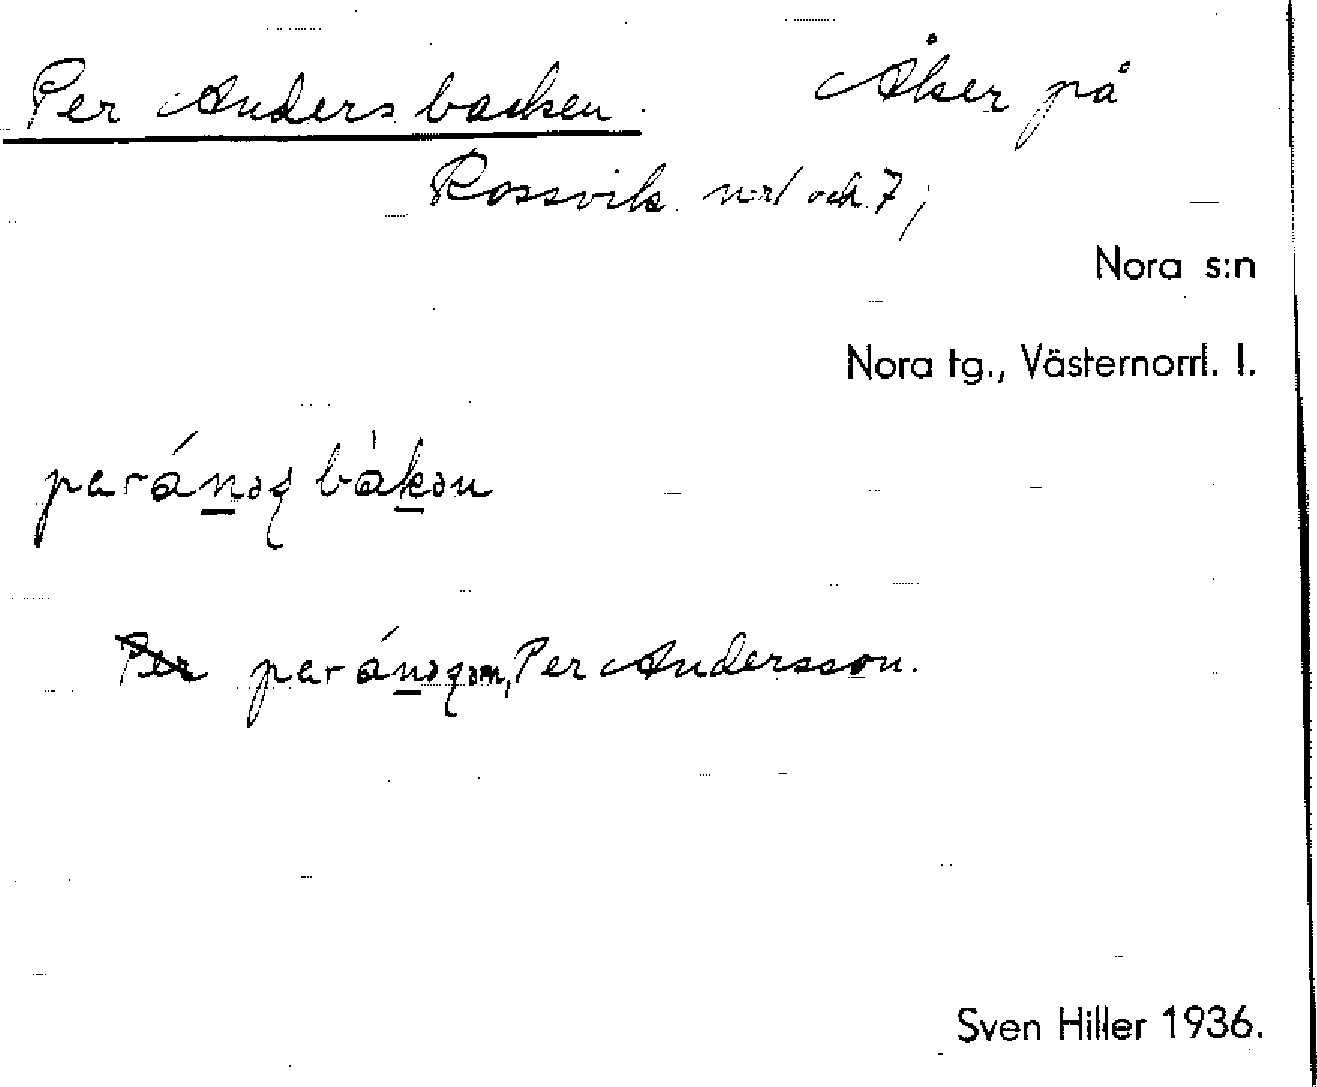 Per Anders backen. Åker på
Rossvik nr 1 och 7;
Nora s:n
Nora tg., Västernorrl. l.
paránəş bákən
Per paránəşəm, Per Andersson.
Sven Hiller 1936.